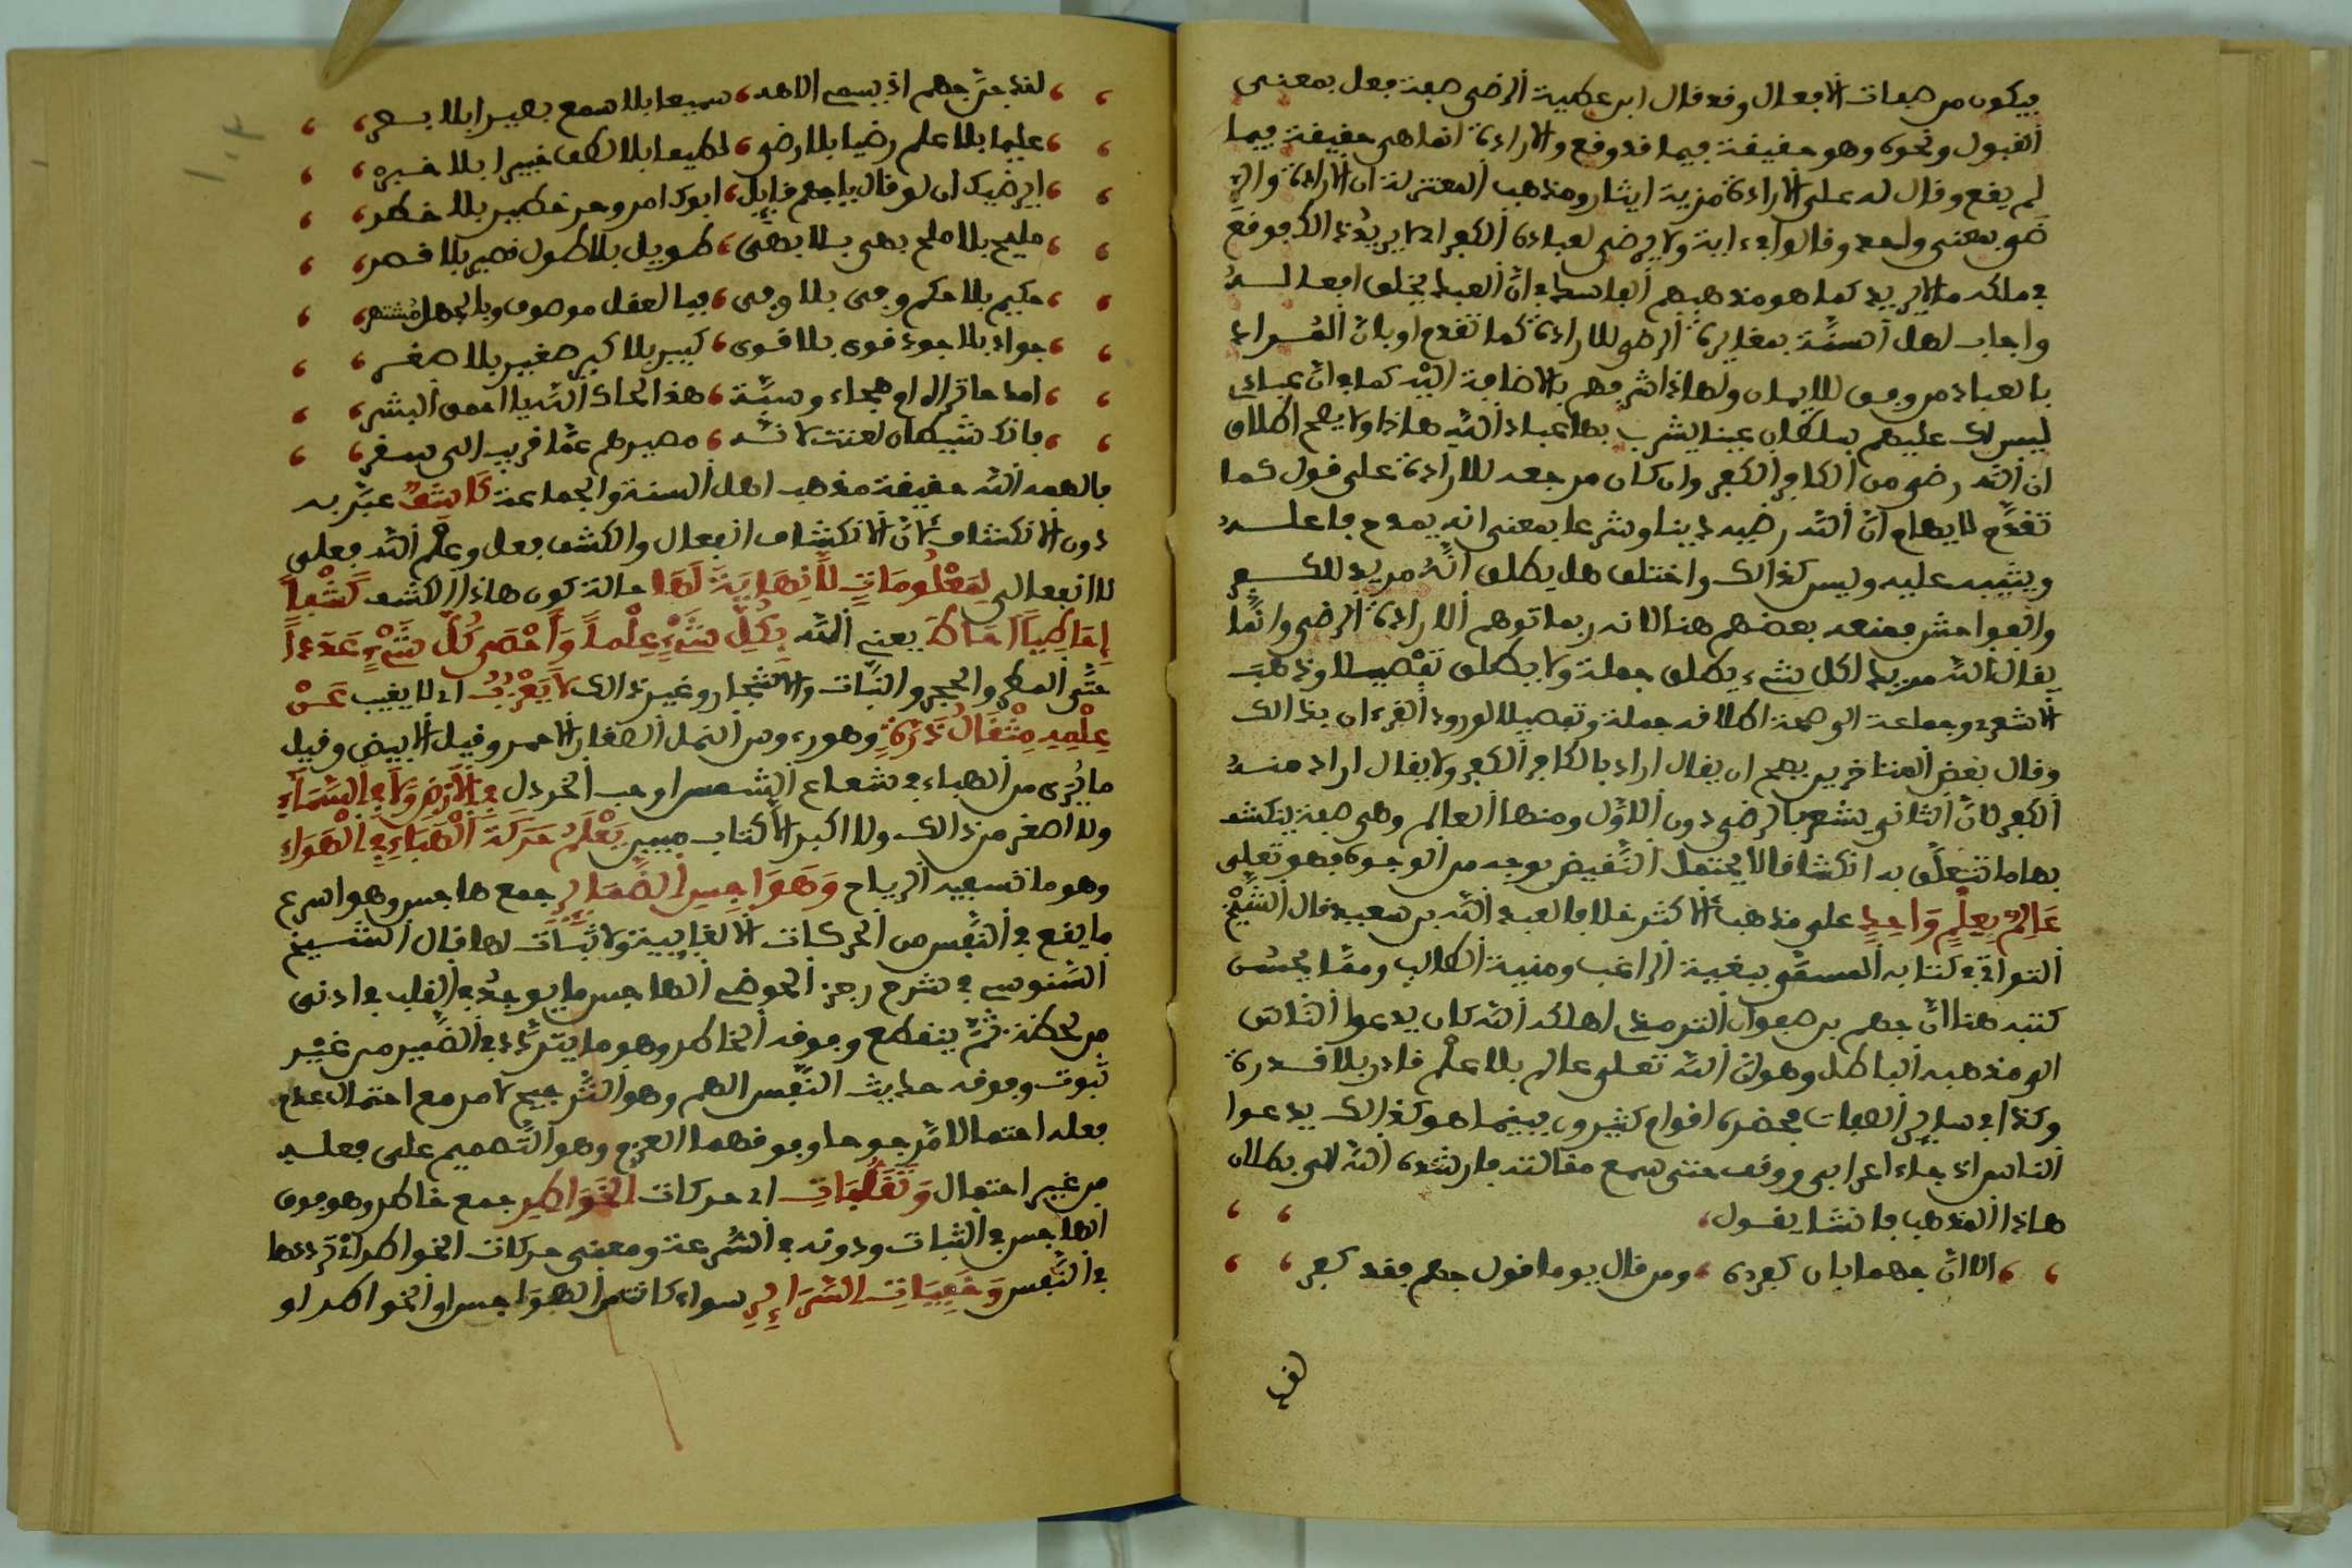 فيكون من صفات الافعال وقد قال ابن عطية الرضى صفة فعل بمعنى
القبول ونحوه وهو حقيقة فيما قد وقع والارادة انما هى حقيقة فيما
لم يقع وقال له على الارادة مزية ايثار ومذهب المعتزلة ان الارادة والر
ضى بمعنى واحد وقالوا فى ءاية ولا يرضى لعباده الكفر اى لا يريد ذالك فوقع
فى ملكه ما لا يريد كما هو مذهبهم الفاسد فى ان العبد يخلق افعاله
واجاب اهل السنة بمغايرة الرضى للارادة كما تقدم او بان المراد
بالعباد من وفق للايمان ولهاذا شرفهم بالاضافة اليه كما فى ان عبادى
ليس لك عليهم سلطان عينا يشرب بها عباد الله هاذا ولا يصح اطلاق
ان الله رضى من الكافر الكفر وان كان مرجعه للارادة على قول كما
تقدم لايهام ان الله رضيه دينا وشرعا بمعنى انه يمدح فاعله
ويثيبه عليه وليس كذالك واختلف هل يطلق انه مريد للكفر
والفواحش فمنعه بعضهم هنا لانه ربما توهم الارادة الرضى وانما
يقال الله مريد لكل شىء يطلق جملة ولا يطلق تفصيلا وذهب
الاشعرى وجماعة الى صحة اطلاقه جملة وتفصيلا لورود القرءان بذالك
وقال بعض المتاخرين يصح ان يقال اراد بالكافر الكفر ولا يقال اراد منه
الكفر لان الثانى يشعر بالرضى دون الاول ومنها العالم وهى صفة ينكشف
بها ما تتعلق به انكشافا لا يحتمل النقيض بوجه من الوجوه فهو تعلى
عَالِمٌ بِعِلْمٍ وَاحِدٍ على مذهب الاكثر خلافا لعبد الله بن سعيد قال الشيخ
التواتى فى كتابه المسمى ببغية الراغب ومنية الطالب ومما يحسن
كتبه هنا ان جهم بن صفوان الترمذى اهلكه الله كان يدعوا الناس
الى مذهبه الباطل وهو ان الله تعلى عالم بلا علم قادر بلا قدرة
وكذا فى ساير الصفات فحضره اقوام كثيرون بينما هو كذالك يدعوا
الناس اذ جاء اعرابى ووقف حتى سمع مقالته فارشده الله الى بطلان
هاذا المذهب فانشا يقول
الا ان جهما بان كفره ومن قال يوما قول جهم فقد كفر
لقد
لقد جن جهم اذ يسمى الاهه سميعا بلا سمع بصيرا بلا بصر
عليما بلا علم رضيا بلا رضى لطيفا بلا لطف خبيرا بلا خبره
ايرضيك ان لو قال يا جهم قايل ابوك امرو حر خطير بلا خطر
مليح بلا ملح بهى بلا بهى طويل بلا طول قصير بلا قصر
حكيم بلا حكم وفى بلا وفى فبالعقل موصوف وبالجهل مشتهر
جواد بلا جود قوى بلا قوى كبير بلا كبر صغير بلا صغر
امدحا تراه ام هجاء وسبة هذا لحاك الله يا احمق البشر
فانك شيطان لعنت لانه مصيرهم عما قريب الى سقر
فالهمه الله حقيقة مذهب اهل السنة والجماعة كَاشِفٌ عبر به
دون الانكشاف لان الانكشاف انفعال والكشف فعل وعلم الله فعلى
لا انفعالى لِمَعْلُومَاتٍ لَا نِهَايَةَ لَهَا حالة كون هاذا الكشف كَشْفاً
إِحَاطِيّاً أحَاطَ يعنى الله بِكُلِّ شَىْءٍ عِلْماً وَأَحْصَى كُلَّ شَىْءٍ عَدَداً
حتى المطر والحجر والنبات والاشجار وغير ذالك لَا يَعْزُبُ اى لا يغيب عَنْ
عِلْمِهِ مِثْقَالُ ذَرَّةٍ وهو رءوس النمل الصغار الاحمر وقيل الابيض وقيل
ما يرى من الهباء فى شعاع الشمس او حب الخردل فِى الْأَرْضِ وَلَا فِى السَّمَاءِ
ولا اصغر من ذالك ولا اكبر الا كتاب مبين يَعْلَمُ حَرَكَةَ الْهَبَاءِ فِى الْهَوَاءِ
وهو ما تسفيه الرياح وَهَوَاجِسَ الضَّمَايِرِ جمع هاجس وهو اسرع
ما يقع فى النفس من الحركات القلبية ولا ثبات لها قال الشيخ
السنوسى فى شرح رجز الحوضى الهاجس ما يوجد فى القلب فى ادنى
من لحظة ثم ينقطع وفوقه الخاطر وهو ما يتردد فى الضمير من غير
ثبوت وفوقه حديث النفس الهم وهو الترجيح لامر مع احتمال عدم
فعله احتمالا مرجوحا وفوقهما العزم وهو التصميم على فعله
من غير احتمال وَتَقَلُّبَاتِ اى حركات الْخَوَاطِرِ جمع خاطر وهو فوق
الهاجس فى الثبات ودونه فى السرعة ومعنى حركات الخواطر ترددها
فى النفس وَخَفِيَّاتِ السَّرَايِرِ سواء كانت من الهواجس او الخواطر او